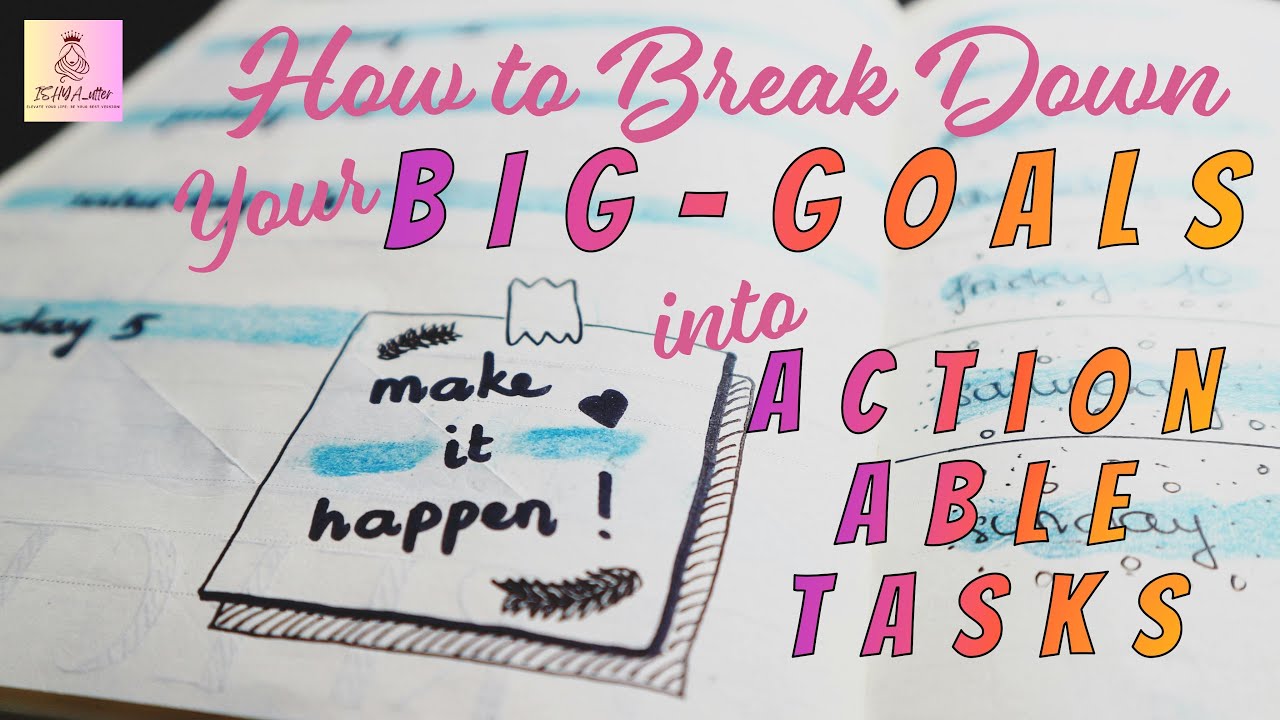 ISHYA_utter
ELEVATE YOUR LIFE: BE YOUR BEST VERSION
How to Break Down
Your BIG-GOALS
into
ACTION
ABLE
TASKS
make
it
happen !
day 5
friday 10
saturday
sunday